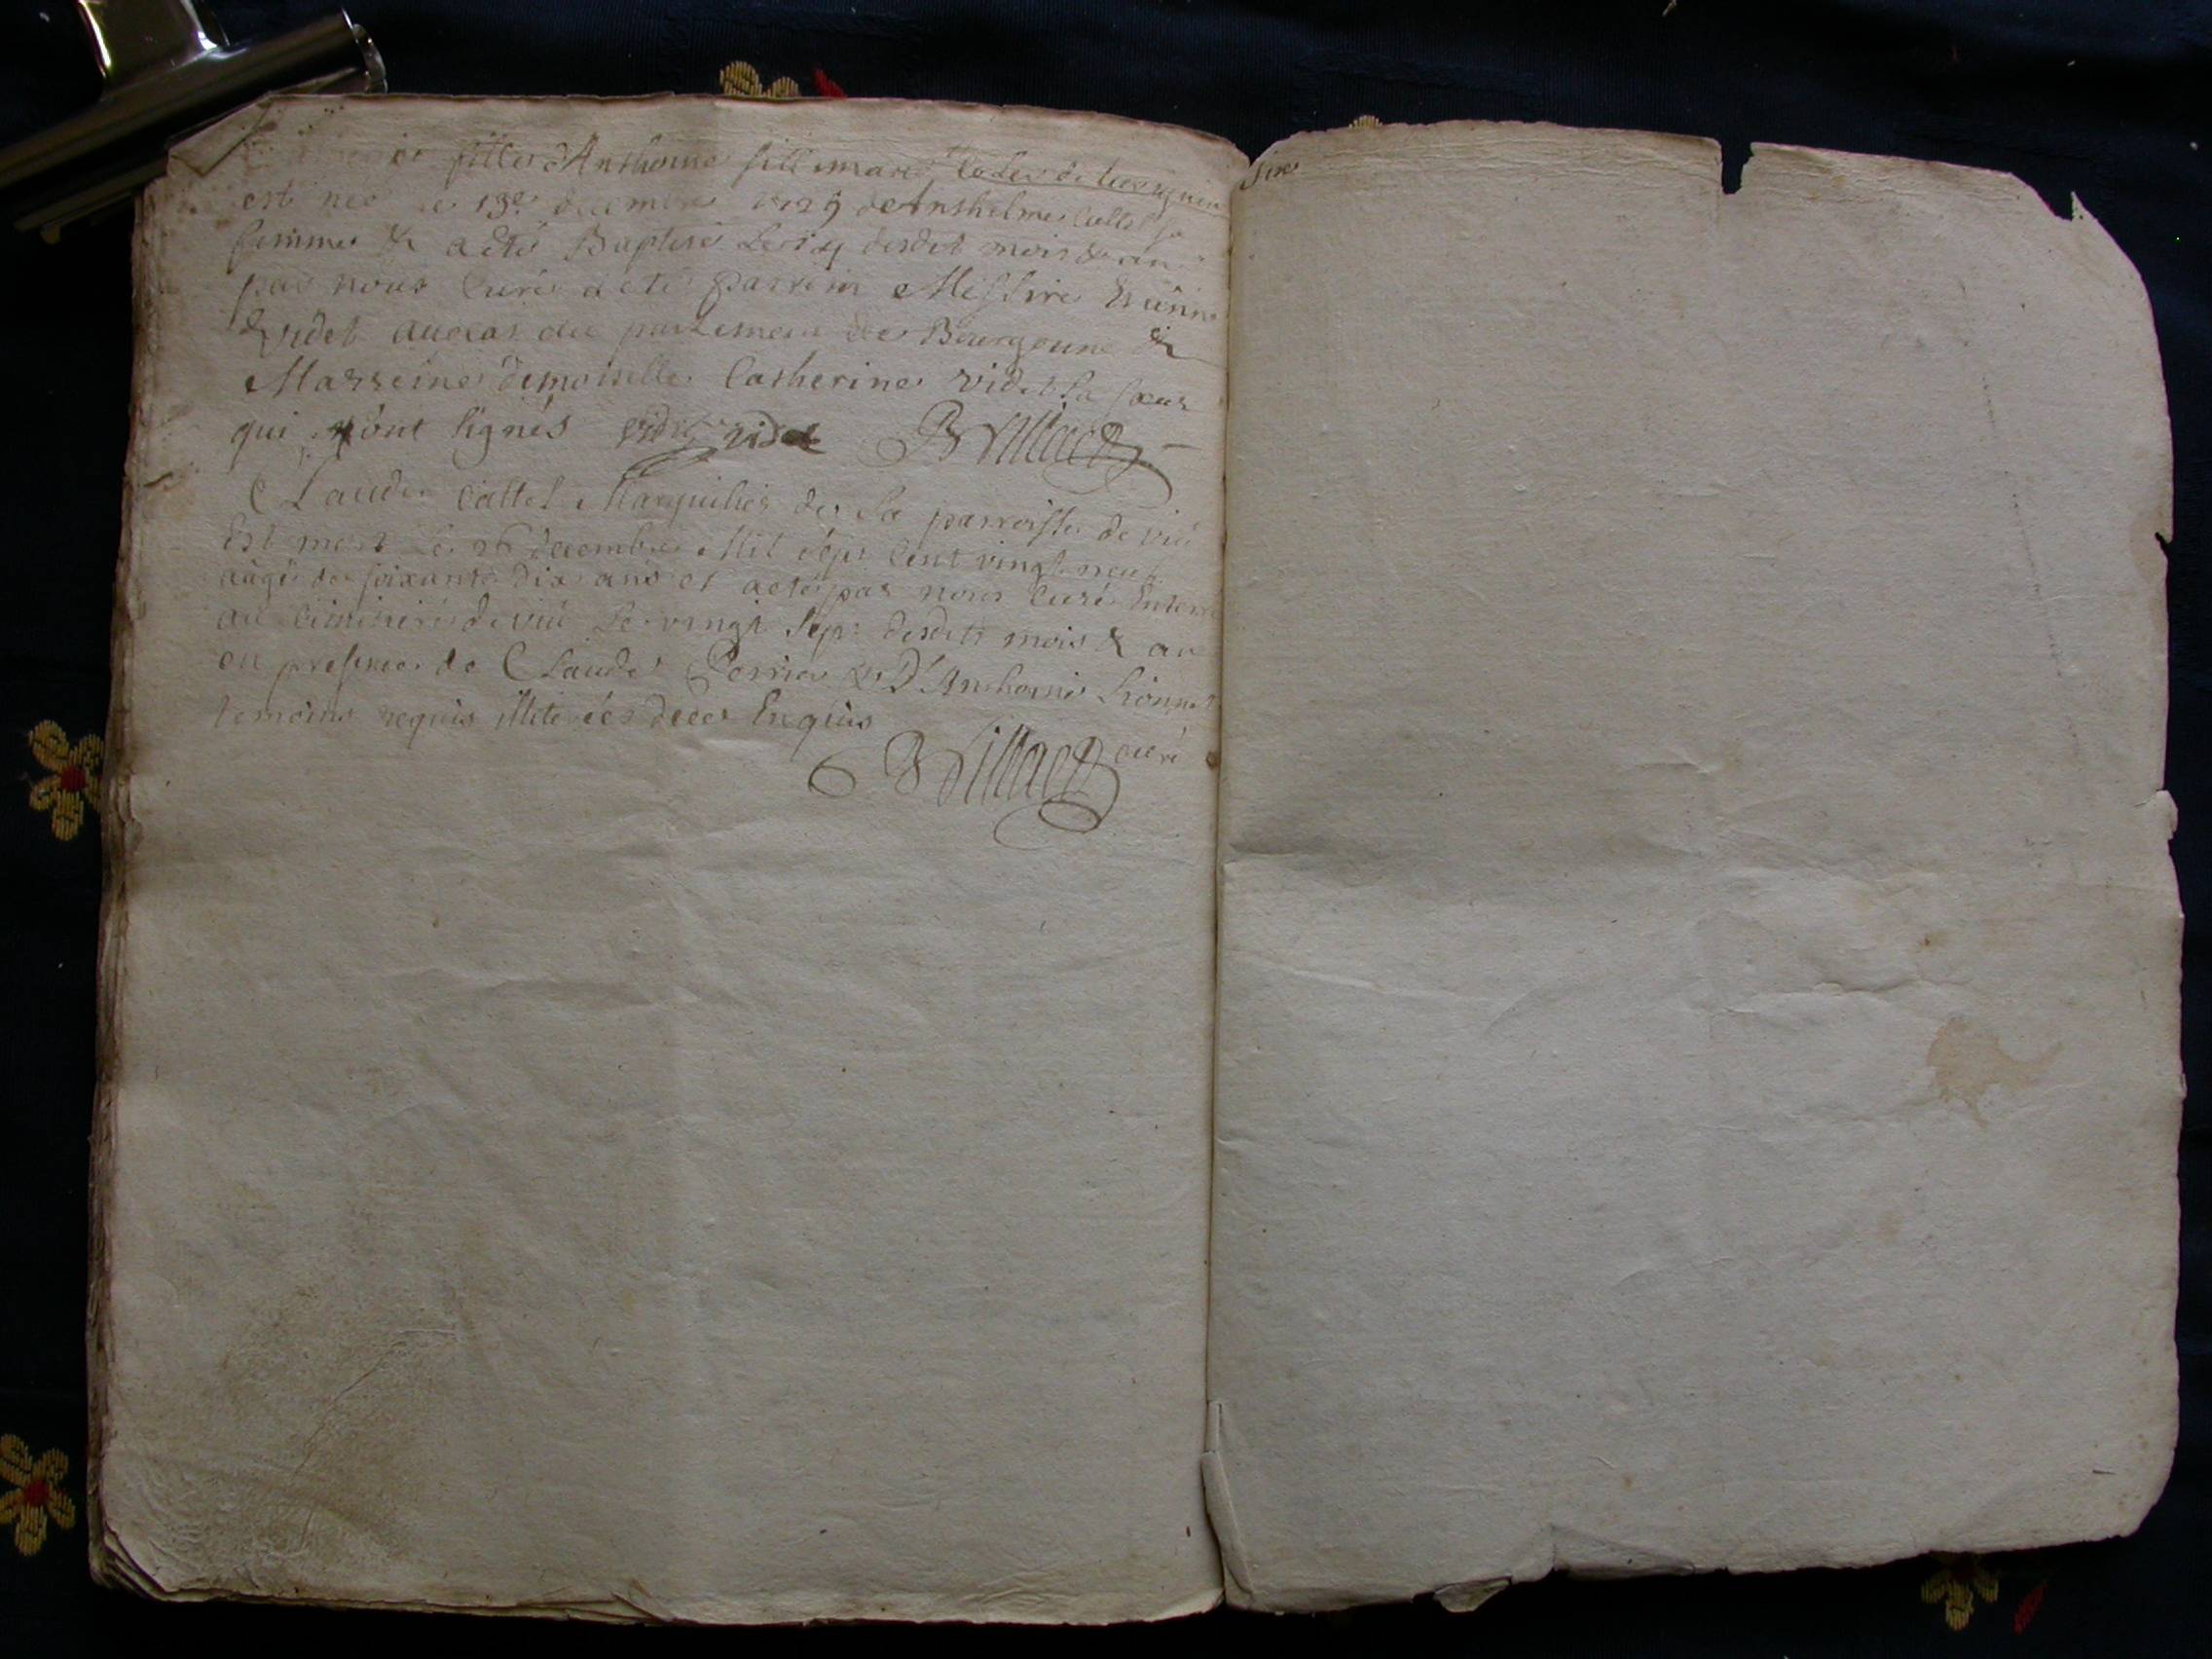 fille d'Anthoine fillimard
est née le 13e decembre 1729 d'Anthelme Callet sa
femme & a été Baptisé Le 14 desdit mois & an
par nous Curé a été parrein Messire Etienne
Videt avocat au parlement de Bourgoune &
Marreine demoiselle Catherine videt sa sœur
qui ont signés videt Brillaet
Claude Callet Marguilier de la parroisse de viu
Est mort Le 26 decembre Mil sept Cent vingt neuf
aagé de soixante dix ans et a eté par nous Curé Enterré
au Cimitiere de viu Le vingt sept desdits mois & an
en presence de Claude Perrier & D'Anthoine
temoins requis illiterés de ce Enquis
Brillaet curé